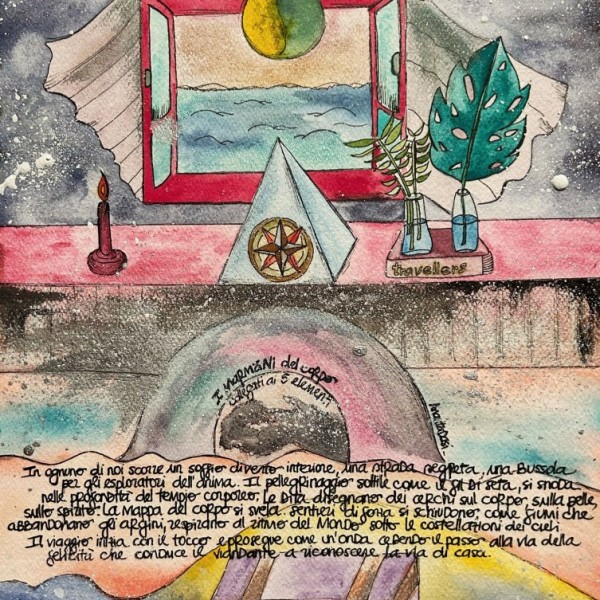 travellers
I MARMANI del corpo
collegati ai 5 elementi
In ognuno di noi scorre un soffio di vento interiore, una strada segreta, una Bussola
per gli esploratori dell'anima. Il pellegrinaggio sottile come i fili di seta, si snoda
nelle profondità del tempio corporeo. Le Dita disegnano dei cerchi sul corpo, sulla pelle,
sullo spirito. La mappa del corpo si svela. Sentieri di gioia si schiudono, come fiumi che
abbandonano gli argini, respirano al ritmo del Mondo sotto le costellazioni dei cieli.
Il viaggio inizia con il tocco e prosegue come un'onda cedendo il passo alla via della
felicità che conduce il viandante a riconoscere la via di casa.